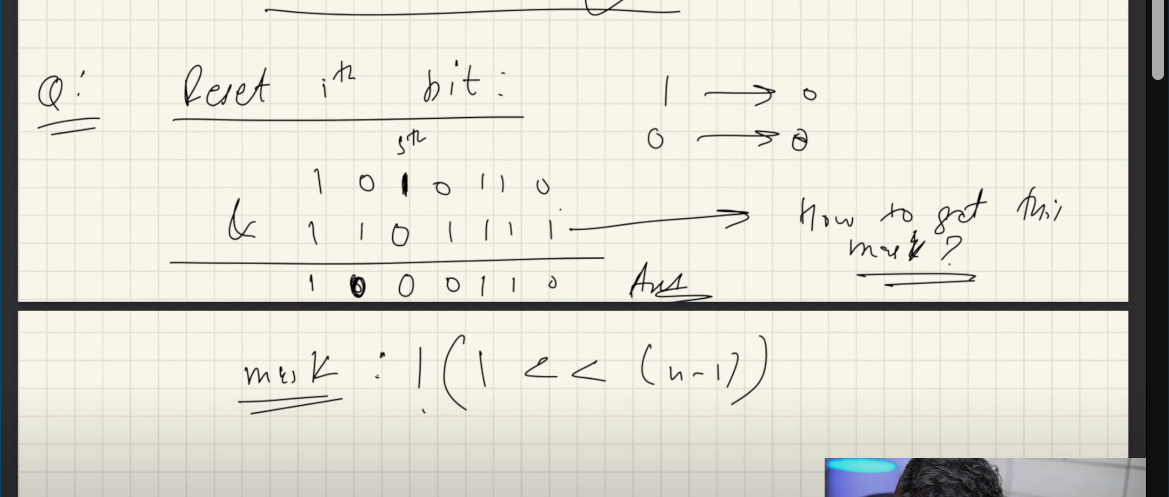 Q: Reset ith bit :
1 → 0
0 → 0
5th
1 0 1 0 1 1 0
& 1 1 0 1 1 1 1 → How to get this mask?
1 0 0 0 1 1 0 Ans
mask : !(1 << (n-1))